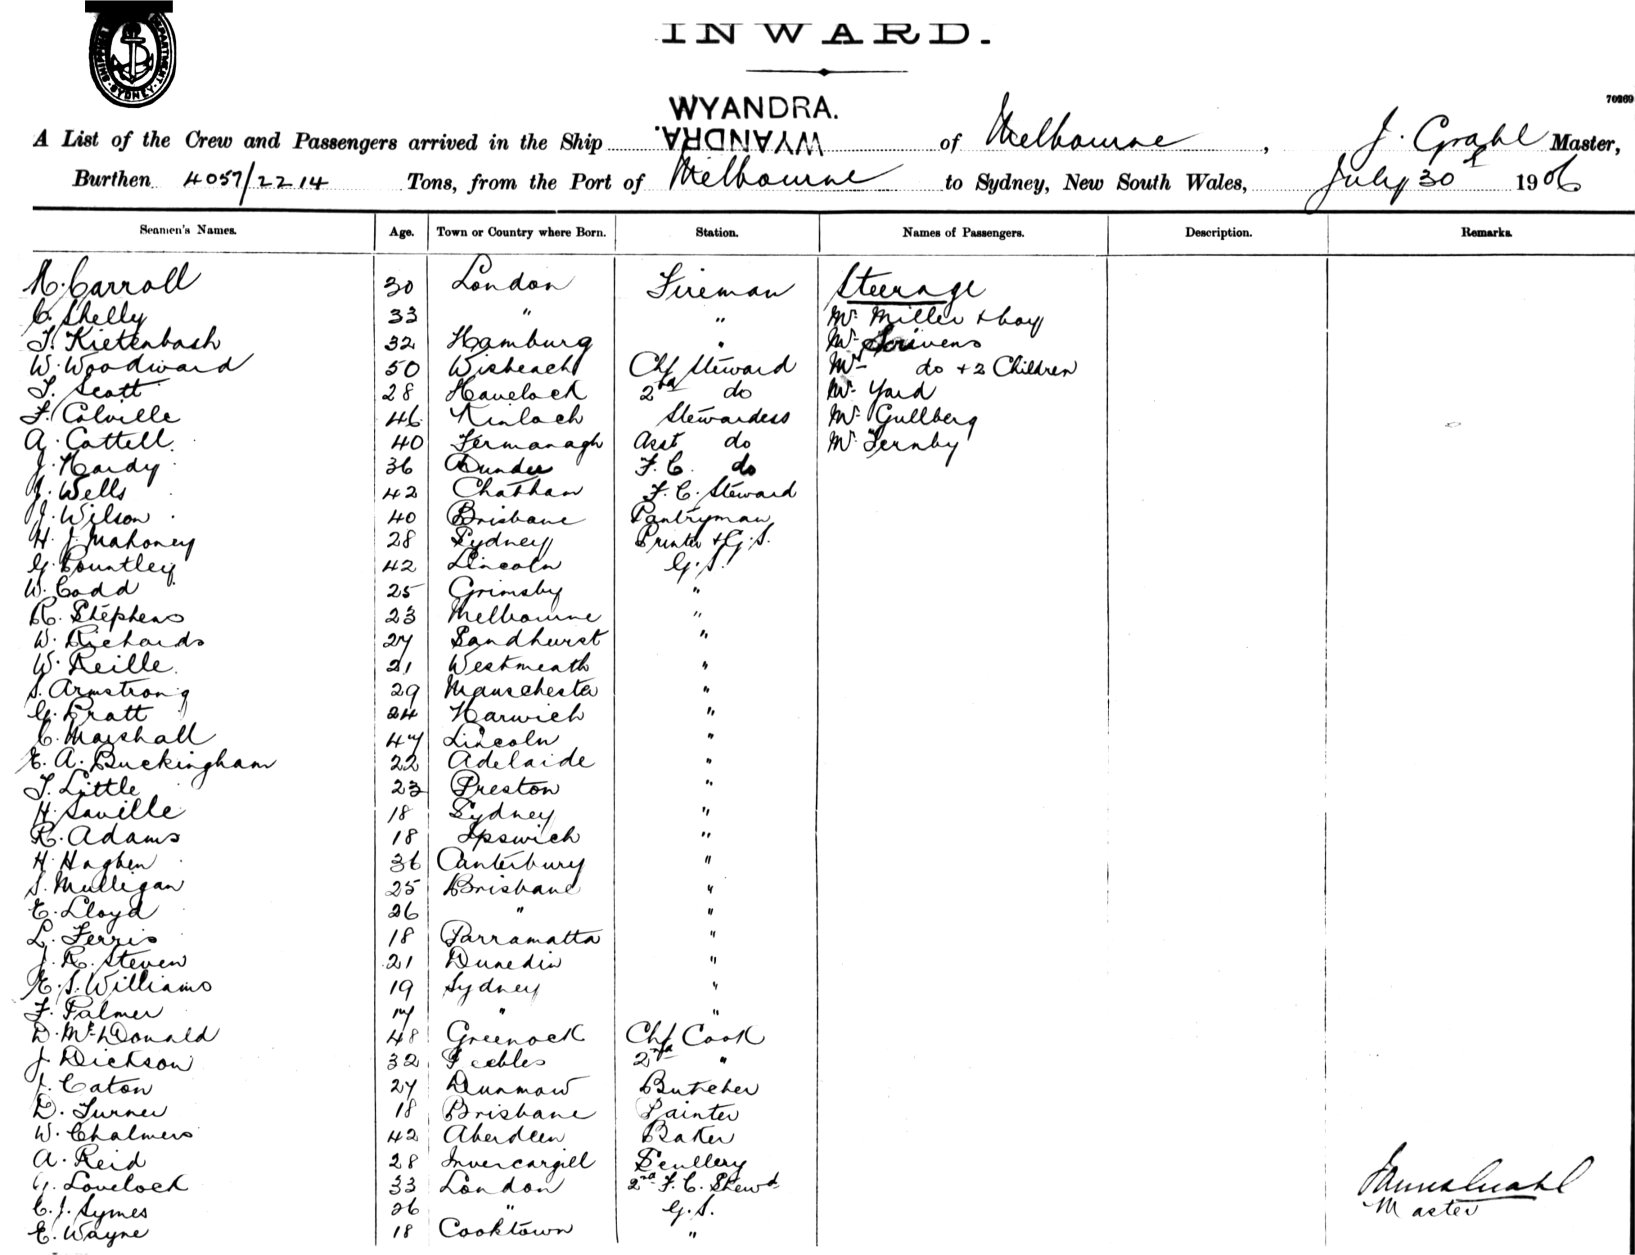 SHIPPING DEPARTMENT SYDNEY
INWARD.
70269
WYANDRA.
A List of the Crew and Passengers arrived in the Ship WYANDRA. of Melbourne, J. Grahl Master,
Burthen 4057/2214 Tons, from the Port of Melbourne to Sydney, New South Wales, July 30t 1906
Seamen's Names. Age. Town or Country where Born. Station. Names of Passengers. Description. Remarks.
Carroll 30 London Fireman Steerage
C. Shelly 33 " " Mr Miller & boy
T. Kietenbash 32 Hamburg " Mr Scrivens
W. Woodward 50 Wisbeach Chf Steward Mrs do + 2 Children
T. Scott 28 Havelock 2nd do Mr Yard
F. Colville 46 Kinloch Stewardess Mr Gullberg
A. Cottell. 40 Fermanagh Asst do Mr Fernby
J. Hardy 36 Dundee F. C. do
J. Wells 42 Chatham F. C. Steward
J. Wilson 40 Brisbane Pantryman
H. J. Mahoney 28 Sydney Printer & G. S.
G. Countley 42 Lincoln G. S.
W. Codd 25 Grimsby "
R. Stephens 23 Melbourne "
W. Richards 27 Sandhurst "
W. Reille. 21 Westmeath "
S. Armstrong 29 Manchester "
G. Pratt 24 Harwich "
C. Marshall 47 Lincoln "
E. A. Buckingham 22 Adelaide "
T. Little 23 Preston "
H. Saville 18 Sydney "
R. Adams 18 Ipswich "
H. Haghen 36 Canterbury "
S. Mulligan 25 Brisbane "
E. Lloyd 26 " "
L. Ferris 18 Parramatta "
J. R. Steven 21 Dunedin "
E. S. Williams 19 Sydney "
F. Palmer 17 " "
D. McDonald 48 Greenock Chf Cook
J. Dickson 32 Peebles 2nd "
J. Eaton 27 Dunmow Butcher
D. Turner 18 Brisbane Painter
W. Chalmers 42 Aberdeen Baker
A. Reid 28 Invercargill Scullery
G. Lovelock 33 London 2nd F. C. Stewd
C. J. Symes 26 " G. S. Master
E. Wayne 18 Cooktown "